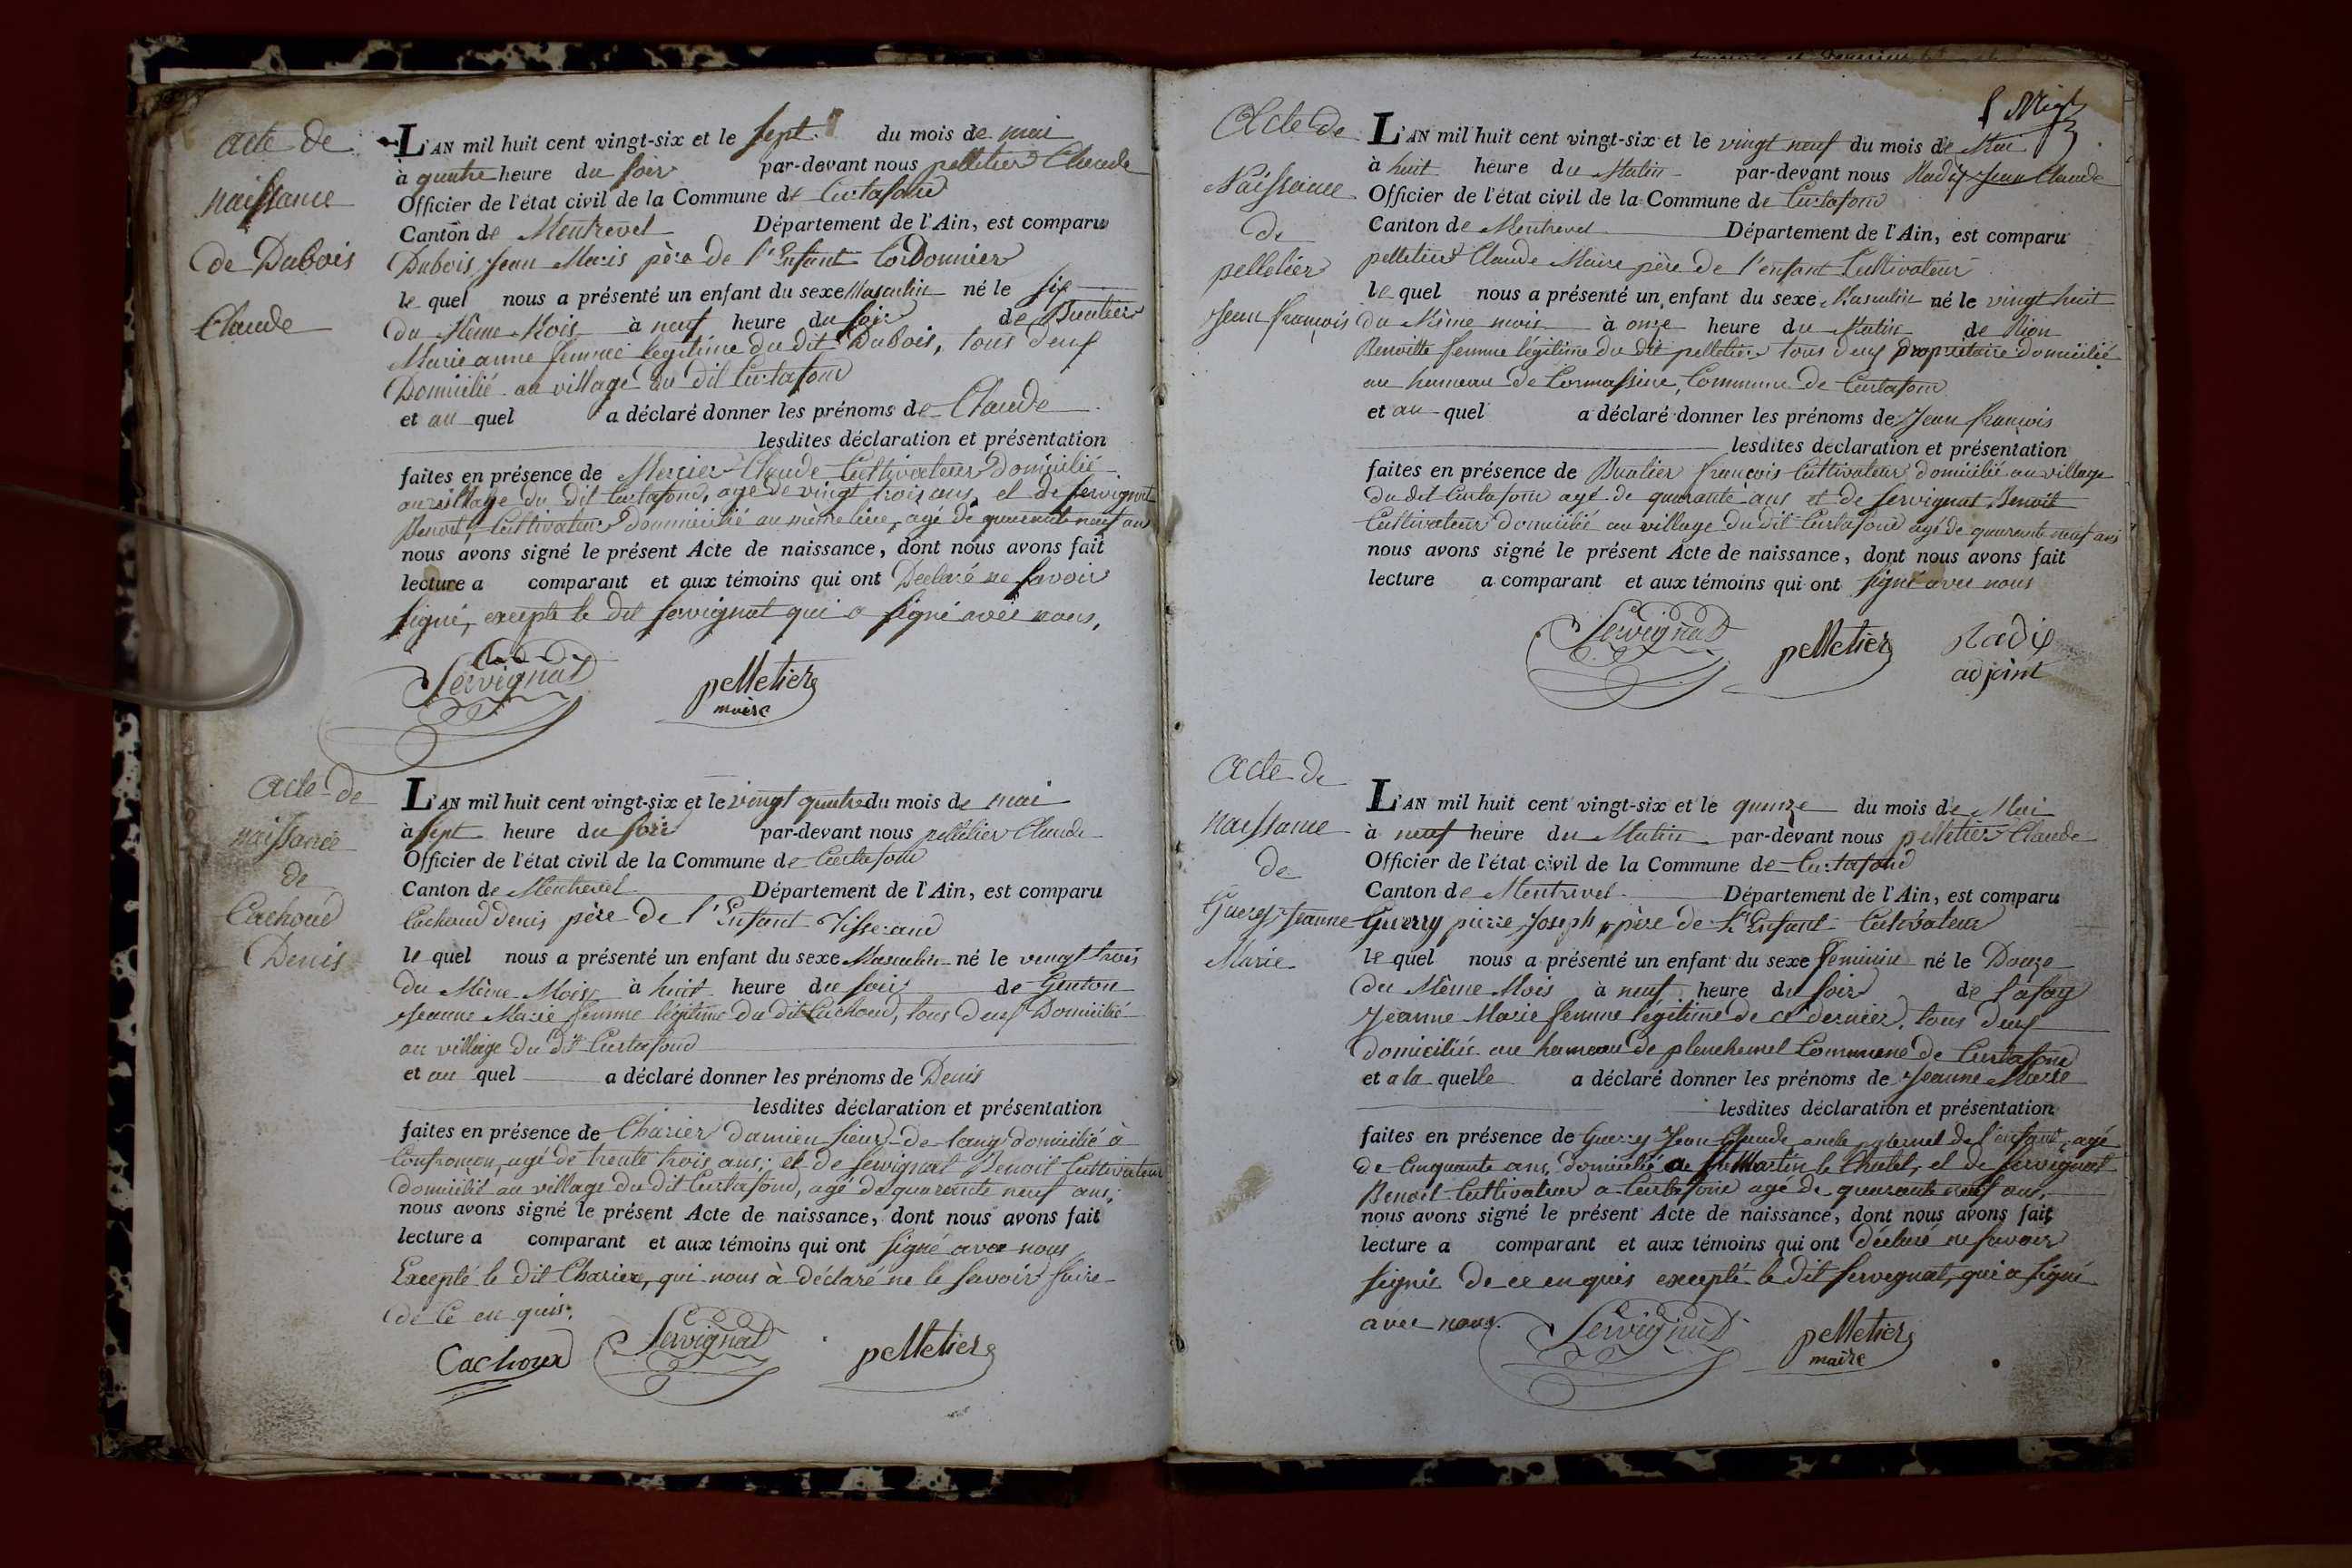 acte de
naissance
de Dubois
Claude
L'AN mil huit cent vingt-six et le sept du mois de mai
à quatre heure du soir par-devant nous pelletier Claude
Officier de l'état civil de la Commune de Curtafond
Canton de Montrevel Département de l'Ain, est comparu
Dubois Jean Maris père de l'Enfant Cordonnier
le quel nous a présenté un enfant du sexe Masculin né le six
du Même Mois à neuf heure du soir de Buatier
Marie anne femme légitime du dit Dubois, tous deux
Domicilié au village du dit Curtafond
et au quel a déclaré donner les prénoms de Claude
lesdites déclaration et présentation
faites en présence de Mercier Claude Cultivateur domicilié
au village du dit Curtafond, agé de vingt trois ans, et de servignat
Benoit, Cultivateur domicilié au même lieu, agé de quarante neuf ans
nous avons signé le présent Acte de naissance, dont nous avons fait
lecture a comparant et aux témoins qui ont Déclaré ne savoir
signé, excepté le dit servignat qui a signé avec nous,
Servignat pelletier
maire
acte de
naissance
de
Cachoud
Denis
L'AN mil huit cent vingt-six et le vingt quatre du mois de mai
à sept heure du soir par-devant nous pelletier Claude
Officier de l'état civil de la Commune de Curtafond
Canton de Montrevel Département de l'Ain, est comparu
Cachoud denis père de l'Enfant Tisserand
le quel nous a présenté un enfant du sexe Masculin né le vingt trois
du Même Mois à huit heure du soir de Genton
Jeanne Marie femme légitime du dit Cachoud, tous deux Domicilié
au village du dit Curtafond
et au quel a déclaré donner les prénoms de Denis
lesdites déclaration et présentation
faites en présence de Charier damien sieur de long domicilié à
Confrançon, agé de trente trois ans; et de servignat Benoit Cultivateur
domicilié au village du dit Curtafond, agé de quarante neuf ans,
nous avons signé le présent Acte de naissance, dont nous avons fait
lecture a comparant et aux témoins qui ont signé avec nous
Excepté le dit Charier, qui nous à déclaré ne le savoir faire
de ce en quis.
Cachoud Servignat pelletier
Acte de
Naissance
de
pelletier
Jean françois
L'AN mil huit cent vingt-six et le vingt neuf du mois de Mai
à huit heure du Matin par-devant nous Radix Jean Claude
Officier de l'état civil de la Commune de Curtafond
Canton de Montrevel Département de l'Ain, est comparu
pelletier Claude Maire père de l'enfant Cultivateur
le quel nous a présenté un enfant du sexe Masculin né le vingt huit
du Même mois à onze heure du Matin de Rion
Benoitte femme légitime du dit pelletier tous deux propriétaire domicilié
au hameau de Cormassine, Commune de Curtafond
et au quel a déclaré donner les prénoms de Jean françois
lesdites déclaration et présentation
faites en présence de Buatier françois Cultivateur domicilié au village
du dit Curtafond agé de quarante ans et de servignat Benoit
Cultivateur domicilié au village du dit Curtafond agé de quarante neuf ans
nous avons signé le présent Acte de naissance, dont nous avons fait
lecture a comparant et aux témoins qui ont signé avec nous
Servignat pelletier Radix
adjoint
acte de
naissance
de
Guerry Jeanne
Marie
L'AN mil huit cent vingt-six et le quinze du mois de Mai
à neuf heure du Matin par-devant nous pelletier Claude
Officier de l'état civil de la Commune de Curtafond
Canton de Montrevel Département de l'Ain, est comparu
Guerry pierre Joseph père de l'Enfant Cultivateur
le quel nous a présenté un enfant du sexe féminin né le Douze
du Même Mois à neuf heure du soir de Lafay
Jeanne Marie femme légitime de ce dernier, tous deux
domiciliés au hameau de planchemel Commune de Curtafond
et a la quelle a déclaré donner les prénoms de Jeanne Marie
lesdites déclaration et présentation
faites en présence de Guerry Jean Claude oncle paternel de l'enfant, agé
de Cinquante ans, domicilié a St Martin le Chatel, et de servignat
Benoit Cultivateur a Curtafond agé de quarante neuf ans,
nous avons signé le présent Acte de naissance, dont nous avons fait
lecture a comparant et aux témoins qui ont déclaré ne savoir
signié de ce en quis excepté le dit servignat, qui a signé
avec nous.
Servignat pelletier
maire